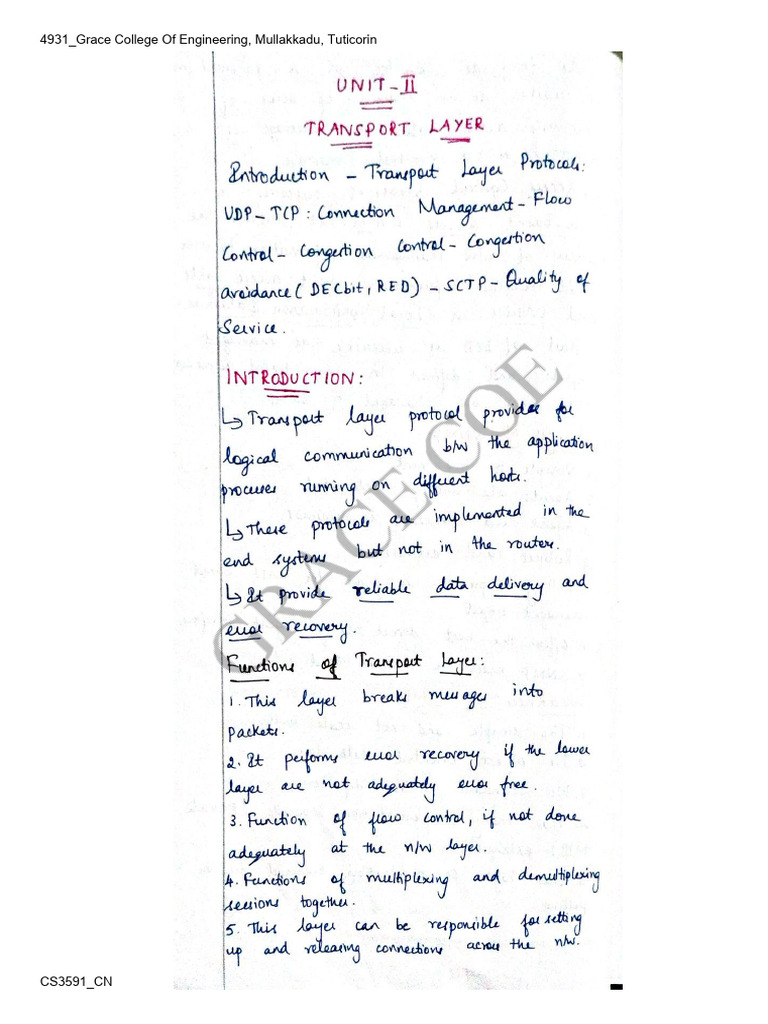 4931_Grace College Of Engineering, Mullakkadu, Tuticorin
UNIT - II
TRANSPORT LAYER
Introduction - Transport Layer Protocols:
UDP - TCP : Connection Management - Flow
Control - Congestion Control - Congestion
avoidance ( DECbit, RED) - SCTP - Quality of
Service.
INTRODUCTION:
↳ Transport layer protocol provides for
logical communication b/w the application
processes running on different hosts.
↳ These protocols are implemented in the
end systems but not in the routers.
↳ It provide reliable data delivery and
error recovery.
Functions of Transport Layer:
1. This layer breaks messages into
packets.
2. It performs error recovery if the lower
layer are not adequately error free.
3. Function of flow control, if not done
adequately at the n/w layer.
4. Functions of multiplexing and demultiplexing
sessions together.
5. This layer can be responsible for setting
up and releasing connections across the n/w.
GRACE COE
CS3591_CN